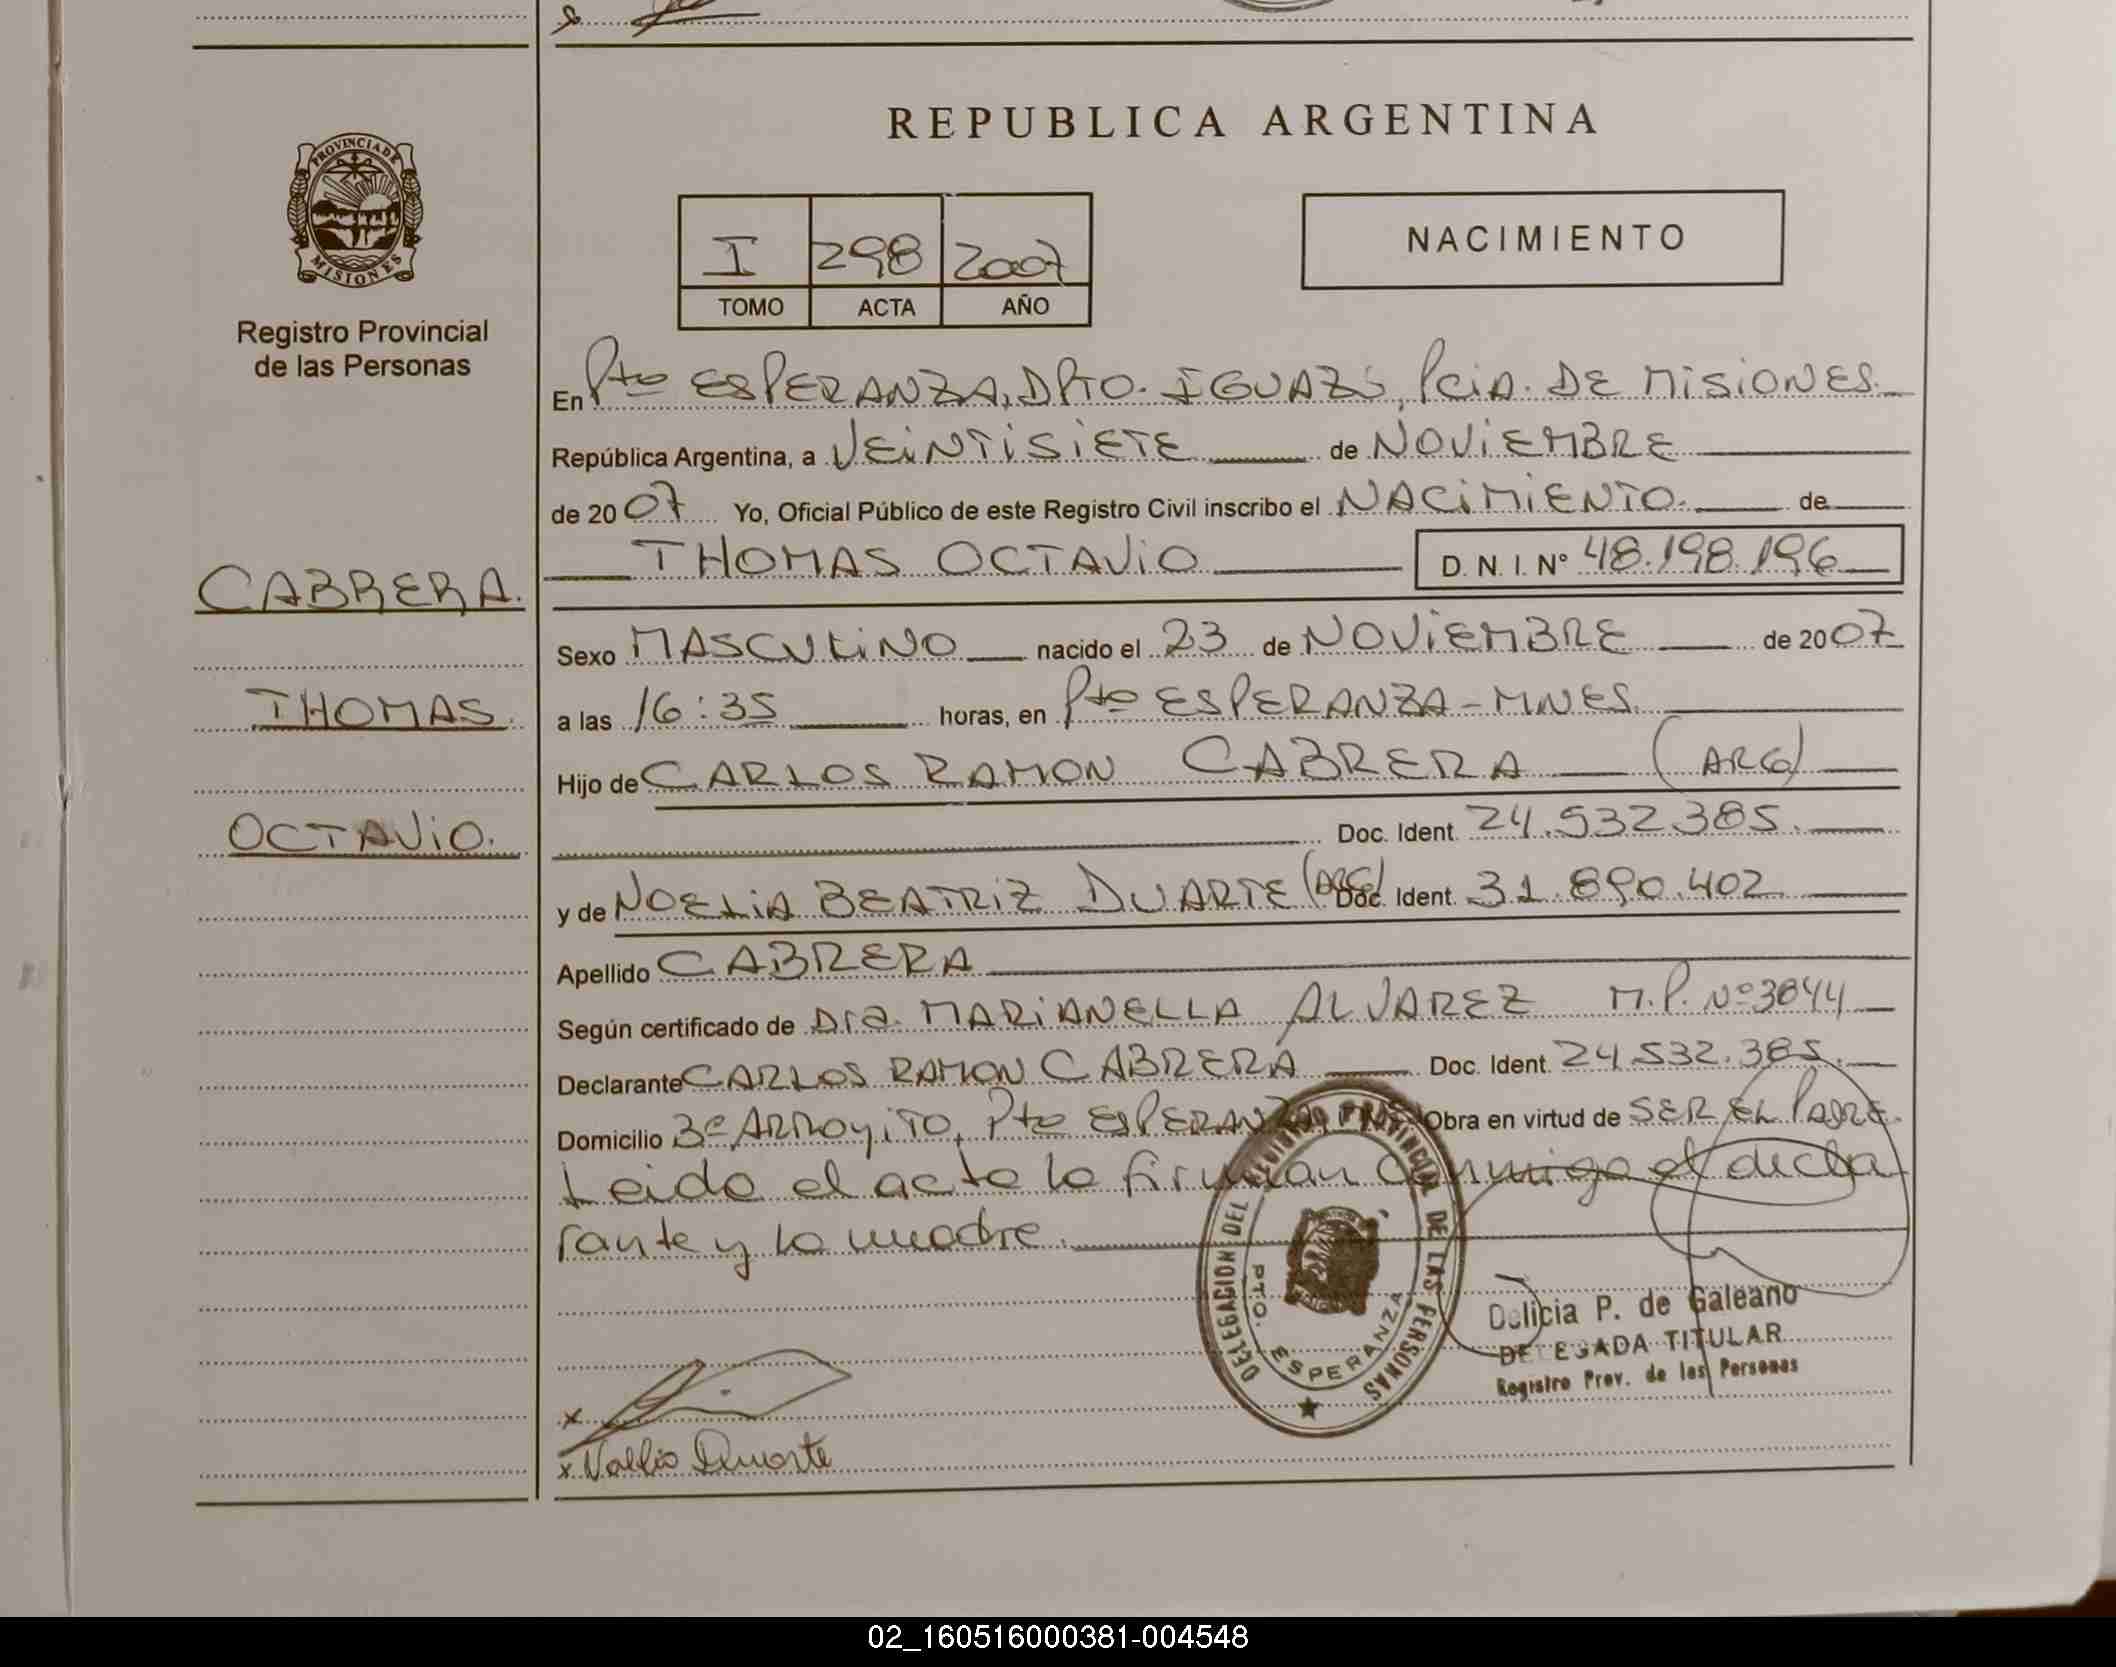 REPUBLICA ARGENTINA
PROVINCIA DE
MISIONES
Registro Provincial
de las Personas
I 298 2007
TOMO ACTA AÑO
NACIMIENTO
En Pto ESPERANZA, DPTO. IGUAZÚ, PciA. DE MISIONES.
República Argentina, a VEINTISIETE de NOVIEMBRE
de 2007 Yo, Oficial Público de este Registro Civil inscribo el NACIMIENTO. de
THOMAS OCTAVIO D. N. I. Nº 48.198.196
CABRERA.
THOMAS.
OCTAVIO.
Sexo MASCULINO nacido el 23 de NOVIEMBRE de 2007
a las 16:35 horas, en Pto ESPERANZA - MNES.
Hijo de CARLOS RAMON CABRERA (ARG)
Doc. Ident. 24.532.385.
y de NOELIA BEATRIZ DUARTE (ARG) Doc. Ident. 31.890.402
Apellido CABRERA
Según certificado de Dra. MARIANELLA ALVAREZ M.P. Nº 3844
Declarante CARLOS RAMON CABRERA Doc. Ident. 24.532.385.
Domicilio 3º ARROYITO, Pto ESPERANZA, Obra en virtud de SER EL PADRE.
Leido el acta la firman conmigo el decla
rante y la madre.
DELEGACION DEL REGISTRO PROVINCIAL DE LAS PERSONAS
PTO. ESPERANZA
Delicia P. de Galeano
DELEGADA TITULAR
Registro Prov. de las Personas
x
x Duarte
02_160516000381-004548